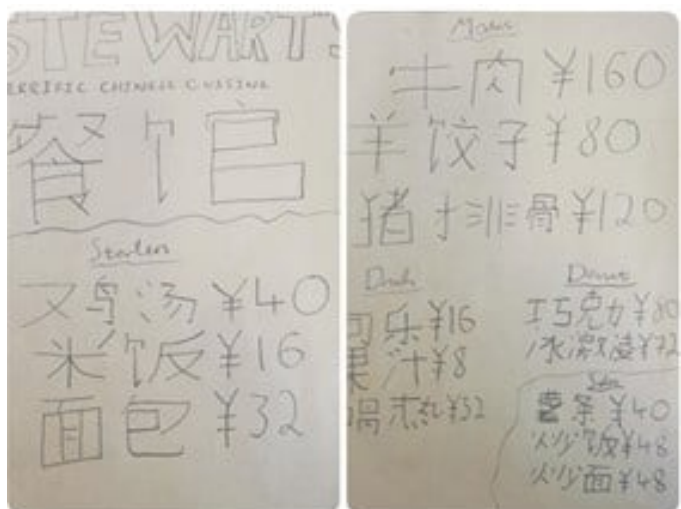 STEWART'S
ERRIFIC CHINESE CUISINE
餐馆
Starters
鸡汤 ¥40
米饭 ¥16
面包 ¥32
Mains
牛肉 ¥160
羊饺子 ¥80
猪排骨 ¥120
乐 ¥16
汁 ¥8
¥32
巧克力 ¥80
冰激凌 ¥72
薯条 ¥40
炒饭 ¥48
炒面 ¥48